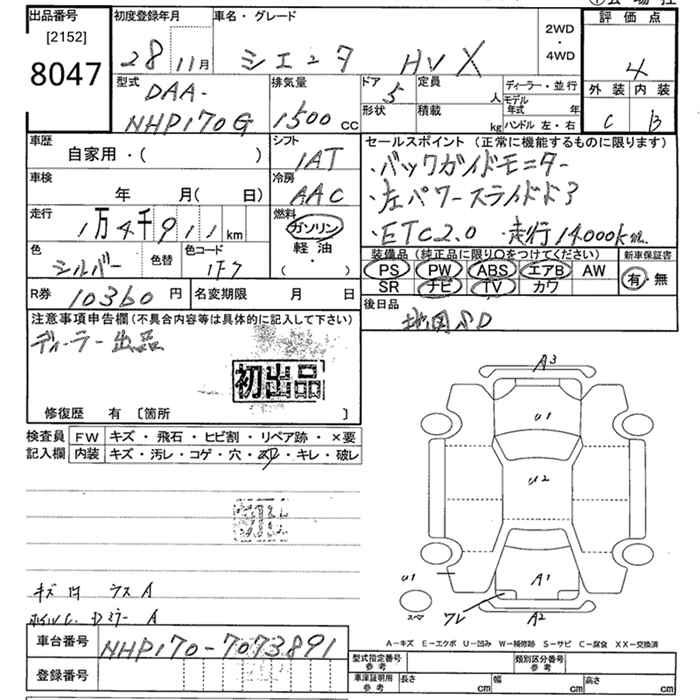 出品番号
[2152]
8047
初度登録年月
28 11月
車名・グレード
シエンタ HV X
2WD
・
4WD
評価点
4
外装 内装
C B
型式
DAA-
NHP170G
排気量
1500 cc
ドア
5
形状
定員
人
積載
kg
ディーラー・並行
モデル
年式 年
ハンドル 左・右
車歴
自家用・( )
シフト
IAT
車検
年 月( 日)
冷房
AAC
走行
1万4千911km
燃料
ガソリン
軽油
( ・ )
色
シルバー
色替
色コード
1F7
R券
10360円
名変期限 月 日
セールスポイント(正常に機能するものに限ります)
・バックガイドモニター
・左パワースライドドア
・ETC2.0 ・走行14,000km
装備品(純正品に限り○をつけてください)
PS PW ABS エアB AW
SR ナビ TV カワ
新車保証書
有・無
後日品
地図SD
注意事項申告欄(不具合内容等は具体的に記入して下さい)
ディーラー出品
初出品
修復歴 有 [箇所 ]
検査員
記入欄
FW キズ・飛石・ヒビ割・リペア跡・×要
内装 キズ・汚レ・コゲ・穴・スレ・キレ・破レ
キズ凹 ウスA
ホイルC. Dミラー A
A3
U1
U2
A1
U1
スペア
ワレ
A2
A-キズ E-エクボ U-凹み W-補修跡 S-サビ C-腐食 XX-交換済
車台番号 NHP170-7073891
登録番号
型式指定番号
参考
類別区分番号
参考
車庫証明用
参考
長さ cm 幅 cm 高さ cm